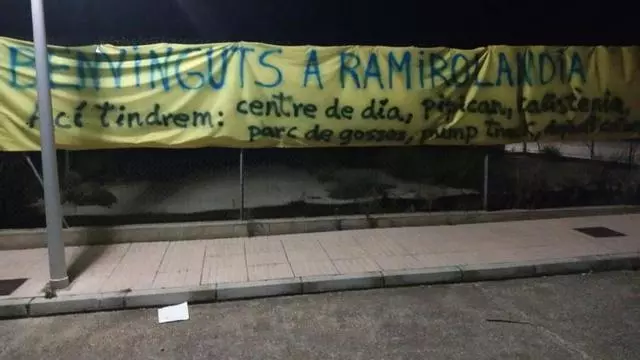 BENVINGUTS A RAMIROLANDIA
Ací tindrem: centre de dia, pipican, calistenia,
parc de gossos, pump track,